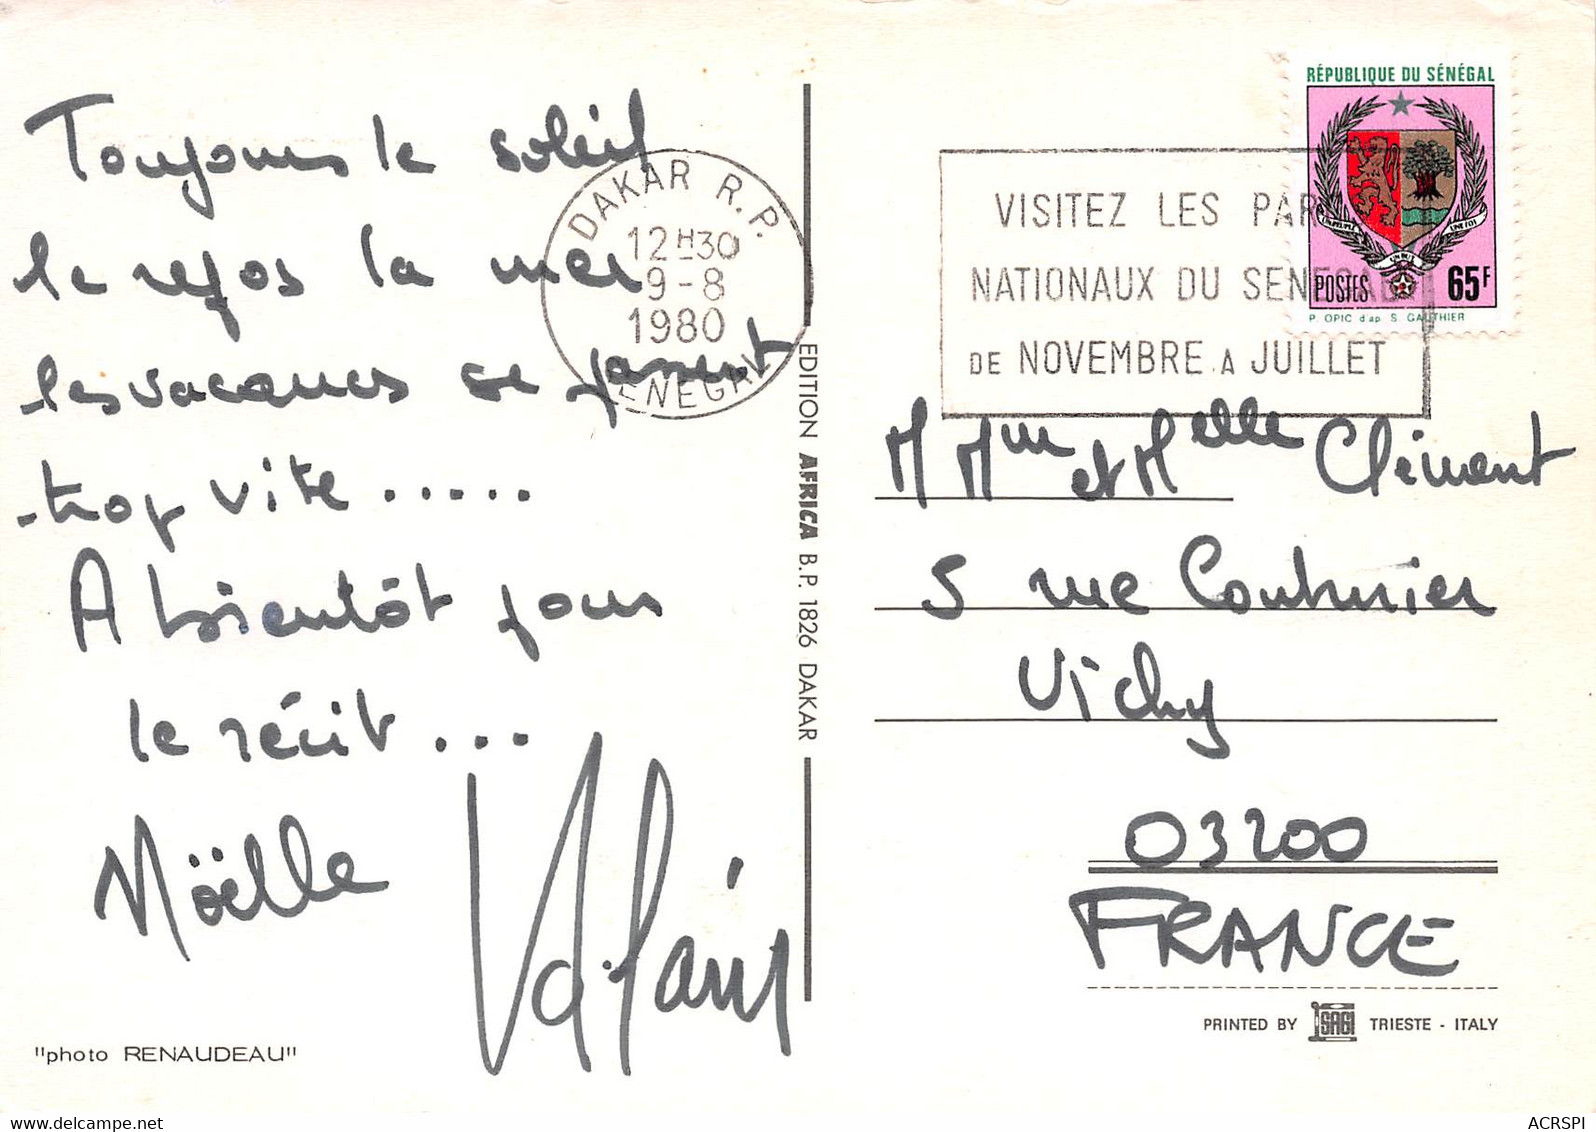 Toujours le soleil
le repos la mer
les vacances se passent
trop vite .....
A bientôt pour
le récit ...
Nöelle
Alain
"photo RENAUDEAU"
DAKAR R.P.
12H30
9-8
1980
SENEGAL
EDITION AFRICA B.P. 1826 DAKAR
VISITEZ LES PARCS
NATIONAUX DU SENEGAL
DE NOVEMBRE A JUILLET
RÉPUBLIQUE DU SÉNÉGAL
UN PEUPLE UN BUT UNE FOI
POSTES 65F
P. OPIC d'ap. S. GAUTHIER
M Mme et Melle Clément
5 rue Couturier
Vichy
03200
FRANCE
PRINTED BY SAGI TRIESTE - ITALY
delcampe.net
ACRSPI